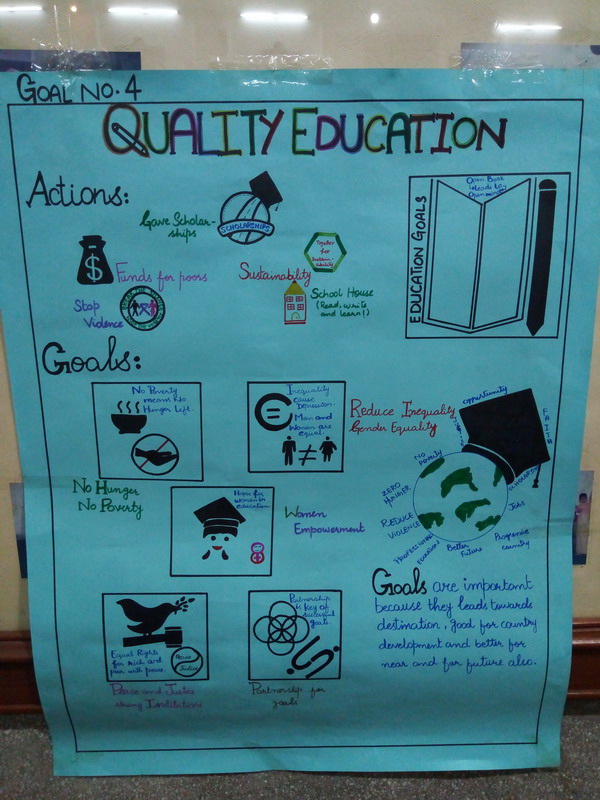 GOAL NO. 4
QUALITY EDUCATION
Actions:
Gave Scholar-
ships
SCHOLARSHIPS
Funds for poors
Stop
Violence
Sustainability
Together
for
Sustain-
ability
School House
(Read, write
and learn!)
EDUCATION GOALS
Open Book
leads to
Open mind
Goals:
No Poverty
means No
Hunger Left.
No Hunger
No Poverty
Inequality
cause
Depression.
Man and
Women are
equal.
Reduce Inequality
Gender Equality
Hope for
women is
education.
Women
Empowerment
opportunity
FAITH
SCHOLARSHIP
Jobs
Progressive
country
Better
Future
EDUCATION
PROFESSIONAL
REDUCE
VIOLENCE
ZERO
HUNGER
NO
POVERTY
Equal Rights
for rich and
poor with peace.
Peace
Justice
Peace and Justice
strong Institutions
Partnership
is key of
successful
goals
Partnership for
goals
Goals are important
because they leads towards
destination, good for country
development and better for
near and far future also.